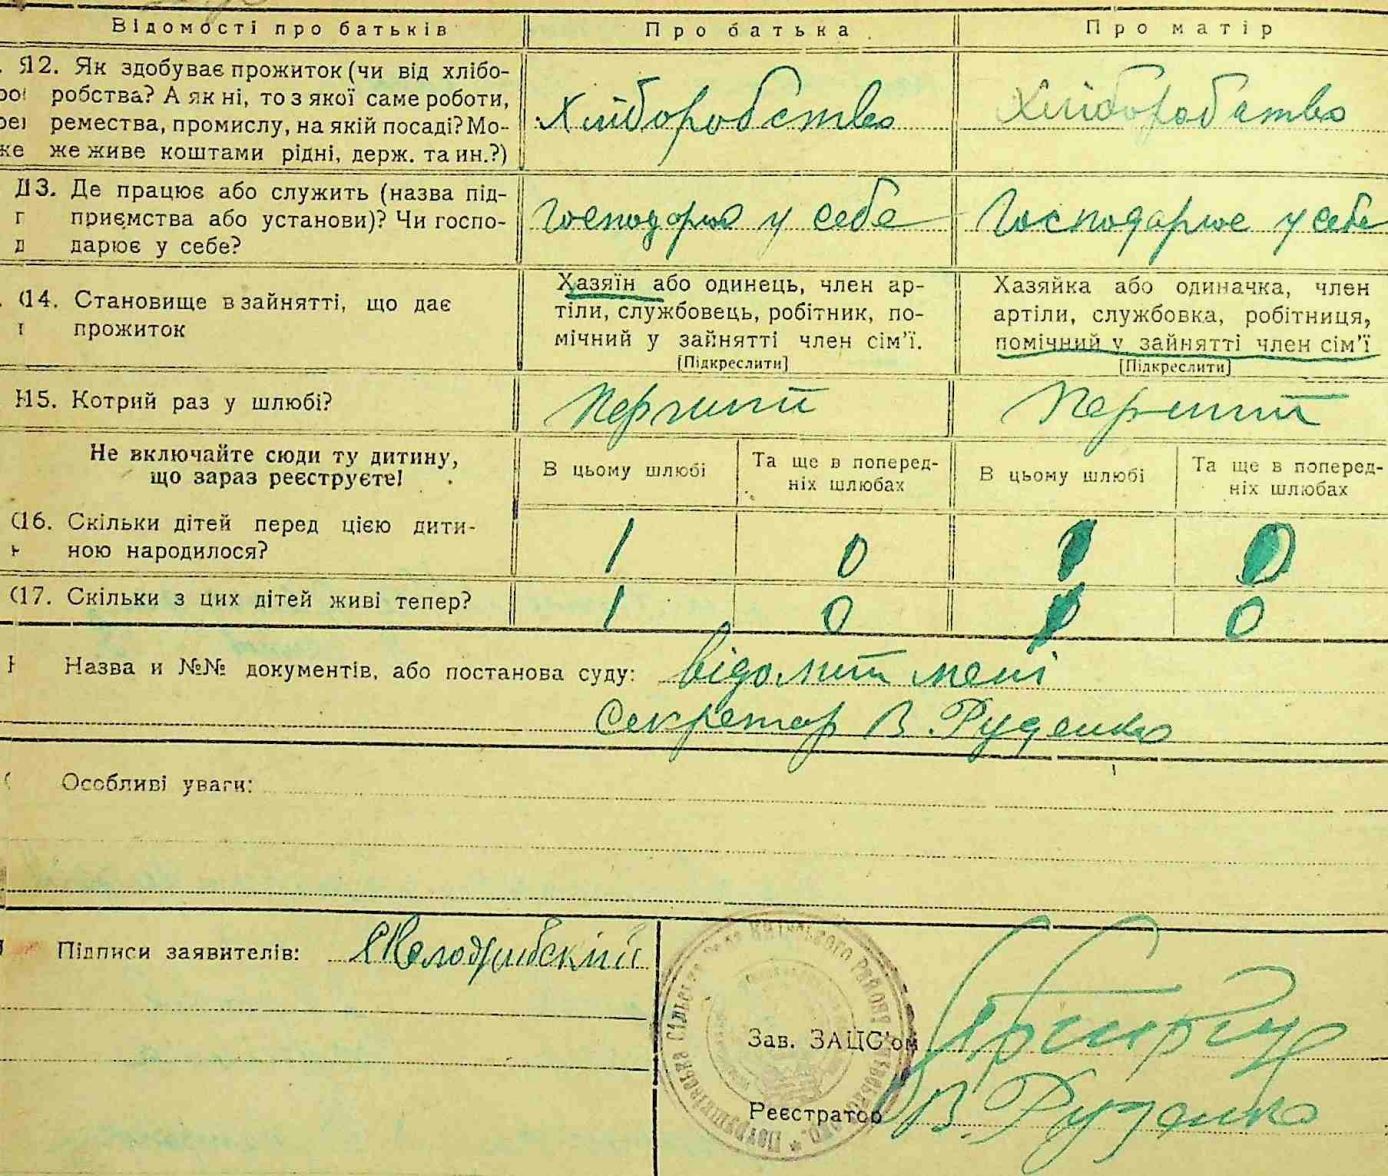 Відомості про батьків
Про батька
Про матір
12. Як здобуває прожиток (чи від хлібо-
робства? А як ні, то з якої саме роботи,
ремества, промислу, на якій посаді? Мо-
же живе коштами рідні, держ. та ин.?)
Хліборобство
Хліборобство
13. Де працює або служить (назва під-
приємства або установи)? Чи госпо-
дарює у себе?
Господарює у себе
Господарює у себе
14. Становище в зайнятті, що дає
прожиток
Хазяїн або одинець, член ар-
тіли, службовець, робітник, по-
мічний у зайнятті член сім'ї.
[Підкреслити]
Хазяйка або одиначка, член
артіли, службовка, робітниця,
помічний у зайнятті член сім'ї
[Підкреслити]
15. Котрий раз у шлюбі?
Перший
Перший
Не включайте сюди ту дитину,
що зараз реєструєте!
В цьому шлюбі
Та ще в поперед-
ніх шлюбах
В цьому шлюбі
Та ще в поперед-
ніх шлюбах
16. Скільки дітей перед цією дити-
ною народилося?
1
0
17. Скільки з цих дітей живі тепер?
1
0
0
Назва и №№ документів, або постанова суду: відомий мені
Секретар В. Руденко
Особливі уваги:
Підписи заявителів:
Зав. ЗАЦС'ом
Реєстратор В. Руденко